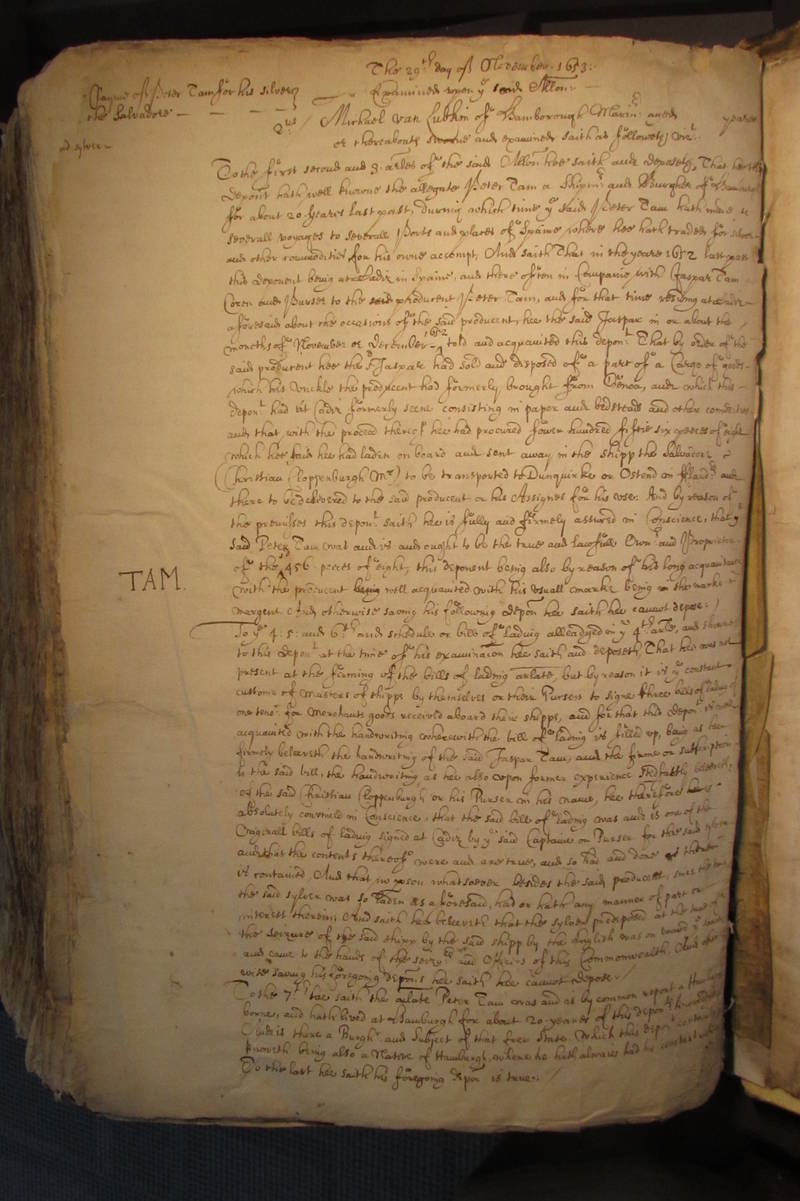 The 29th day of November 1653:
Examined upon ye said Allon:
Clayme of Peter Tam for his silver
the Salvadore
2us Michael Van Lubkin of Hamborough Marinr aged yeares
or thereabouts sworne and examined saith as followeth vizt.
To the first second and 3. arles of the said Allon hee saith and deposeth, That hee this
depont hath well knowne the allegate Peter Tam a Shipmr and Burgher of
for about 20 yeares last past, During which time ye said Peter Tam hath made
severall voyages to severall Ports and places of Spaine where hee hath traded for silver
and other comodities for his owne accompt, And saith That in the yeare 1652 last past
this deponent being at Cadiz in Spaine, and there often in Companie with Jaspar Tam
Cozen and Purser to the said producent Peter Tam, and for that time residing at Cadiz
aforesaid about the occasions of the said producent, hee the said Jaspar in or about the
moneths of November or December 1652 told and acquainted this depont That by order of the
said producent hee the sd Jaspar had sold and disposed of a part of a Cargo of goods
which his Unckle the producent had formerly brought from Genoa, and which this
depont had at Cadiz formerly seene consisting in paper and bedsteads and other comodities
and that with the proceed thereof hee had procured fower hundred fiftie six peeces of eight
which hee said hee had laden on board and sent away in the shipp the Salvador
(Christian Cloppenburgh Mr) to be transported to Dunquirke or Ostend in Flandrs and
there to be delivered to the said producent or his Assignes for his use. And by reason of
the premisses this depont saith hee is fully and firmely assured in Conscience, that ye
said Peter Tam was and is and ought to be the true and lawfull Owner and Proprietor
of the sd 456 peeces of eight, this deponent being also by reason of his long acquaintance
TAM.
with the producent being well acquainted with his usuall marke being in the marke in
margent And otherwise saving his following depon hee saith hee cannot depose./
To ye 4: 5: and 6th and schedule or bill of lading alleadged in ye 4th arle, and showne
to this deponet at the time of his examinacon hee saith and deposeth That hee was not
present at the firming of the bills of lading arlate, but by reason it is ye constant
custome of Masters of shipps by themselves or their Pursers to signe three bills of lading of
one tenor for Merchants goods received aboard their shipps, and for that this deponet is well
acquainted with the handwriting wherewith the bill of lading is filled up, being as hee
firmely beleeveth the handwriting of the said Jaspar Tam, and the firme or subscription
to the said bill, the handwriting, as hee also upon former experience stedfastly beleeveth,
of the said Christian Cloppenburgh or his Purser in his name, hee therefore
absolutely convinced in Conscience, that the said bill of lading was and is one of the
Originall bills of lading signed at Cadiz by ye said Captaine or Purser for the said silver
and that the contents thereof were and are true, and so had and done as therein
is contained, And that no person whatsoever besides the said producent, since the time
the said sylver was so laden as aforesaid, had or hath any manner of part or
interest therein; And saith hee beleeveth that the sylver predeposed at the time of
the seizure of the said shipp by the said shipp by the English was on board ye said
and came to the hands of the and Officers of this Commonwealth. And other
wise saving his foregoing depons hee saith hee cannot depose.
To the 7th hee saith the arlate Peter Tam was and is by common report a Hamburger
borne, and hath lived at Hamburgh for about 20 yeares of this deponts knowledge
And is there a Burgher and Subject of that free State. Which this deponet
knoweth being also a Native of Hamburgh, where he hath alwaies had
To the last hee saith his foregoing depon is true./